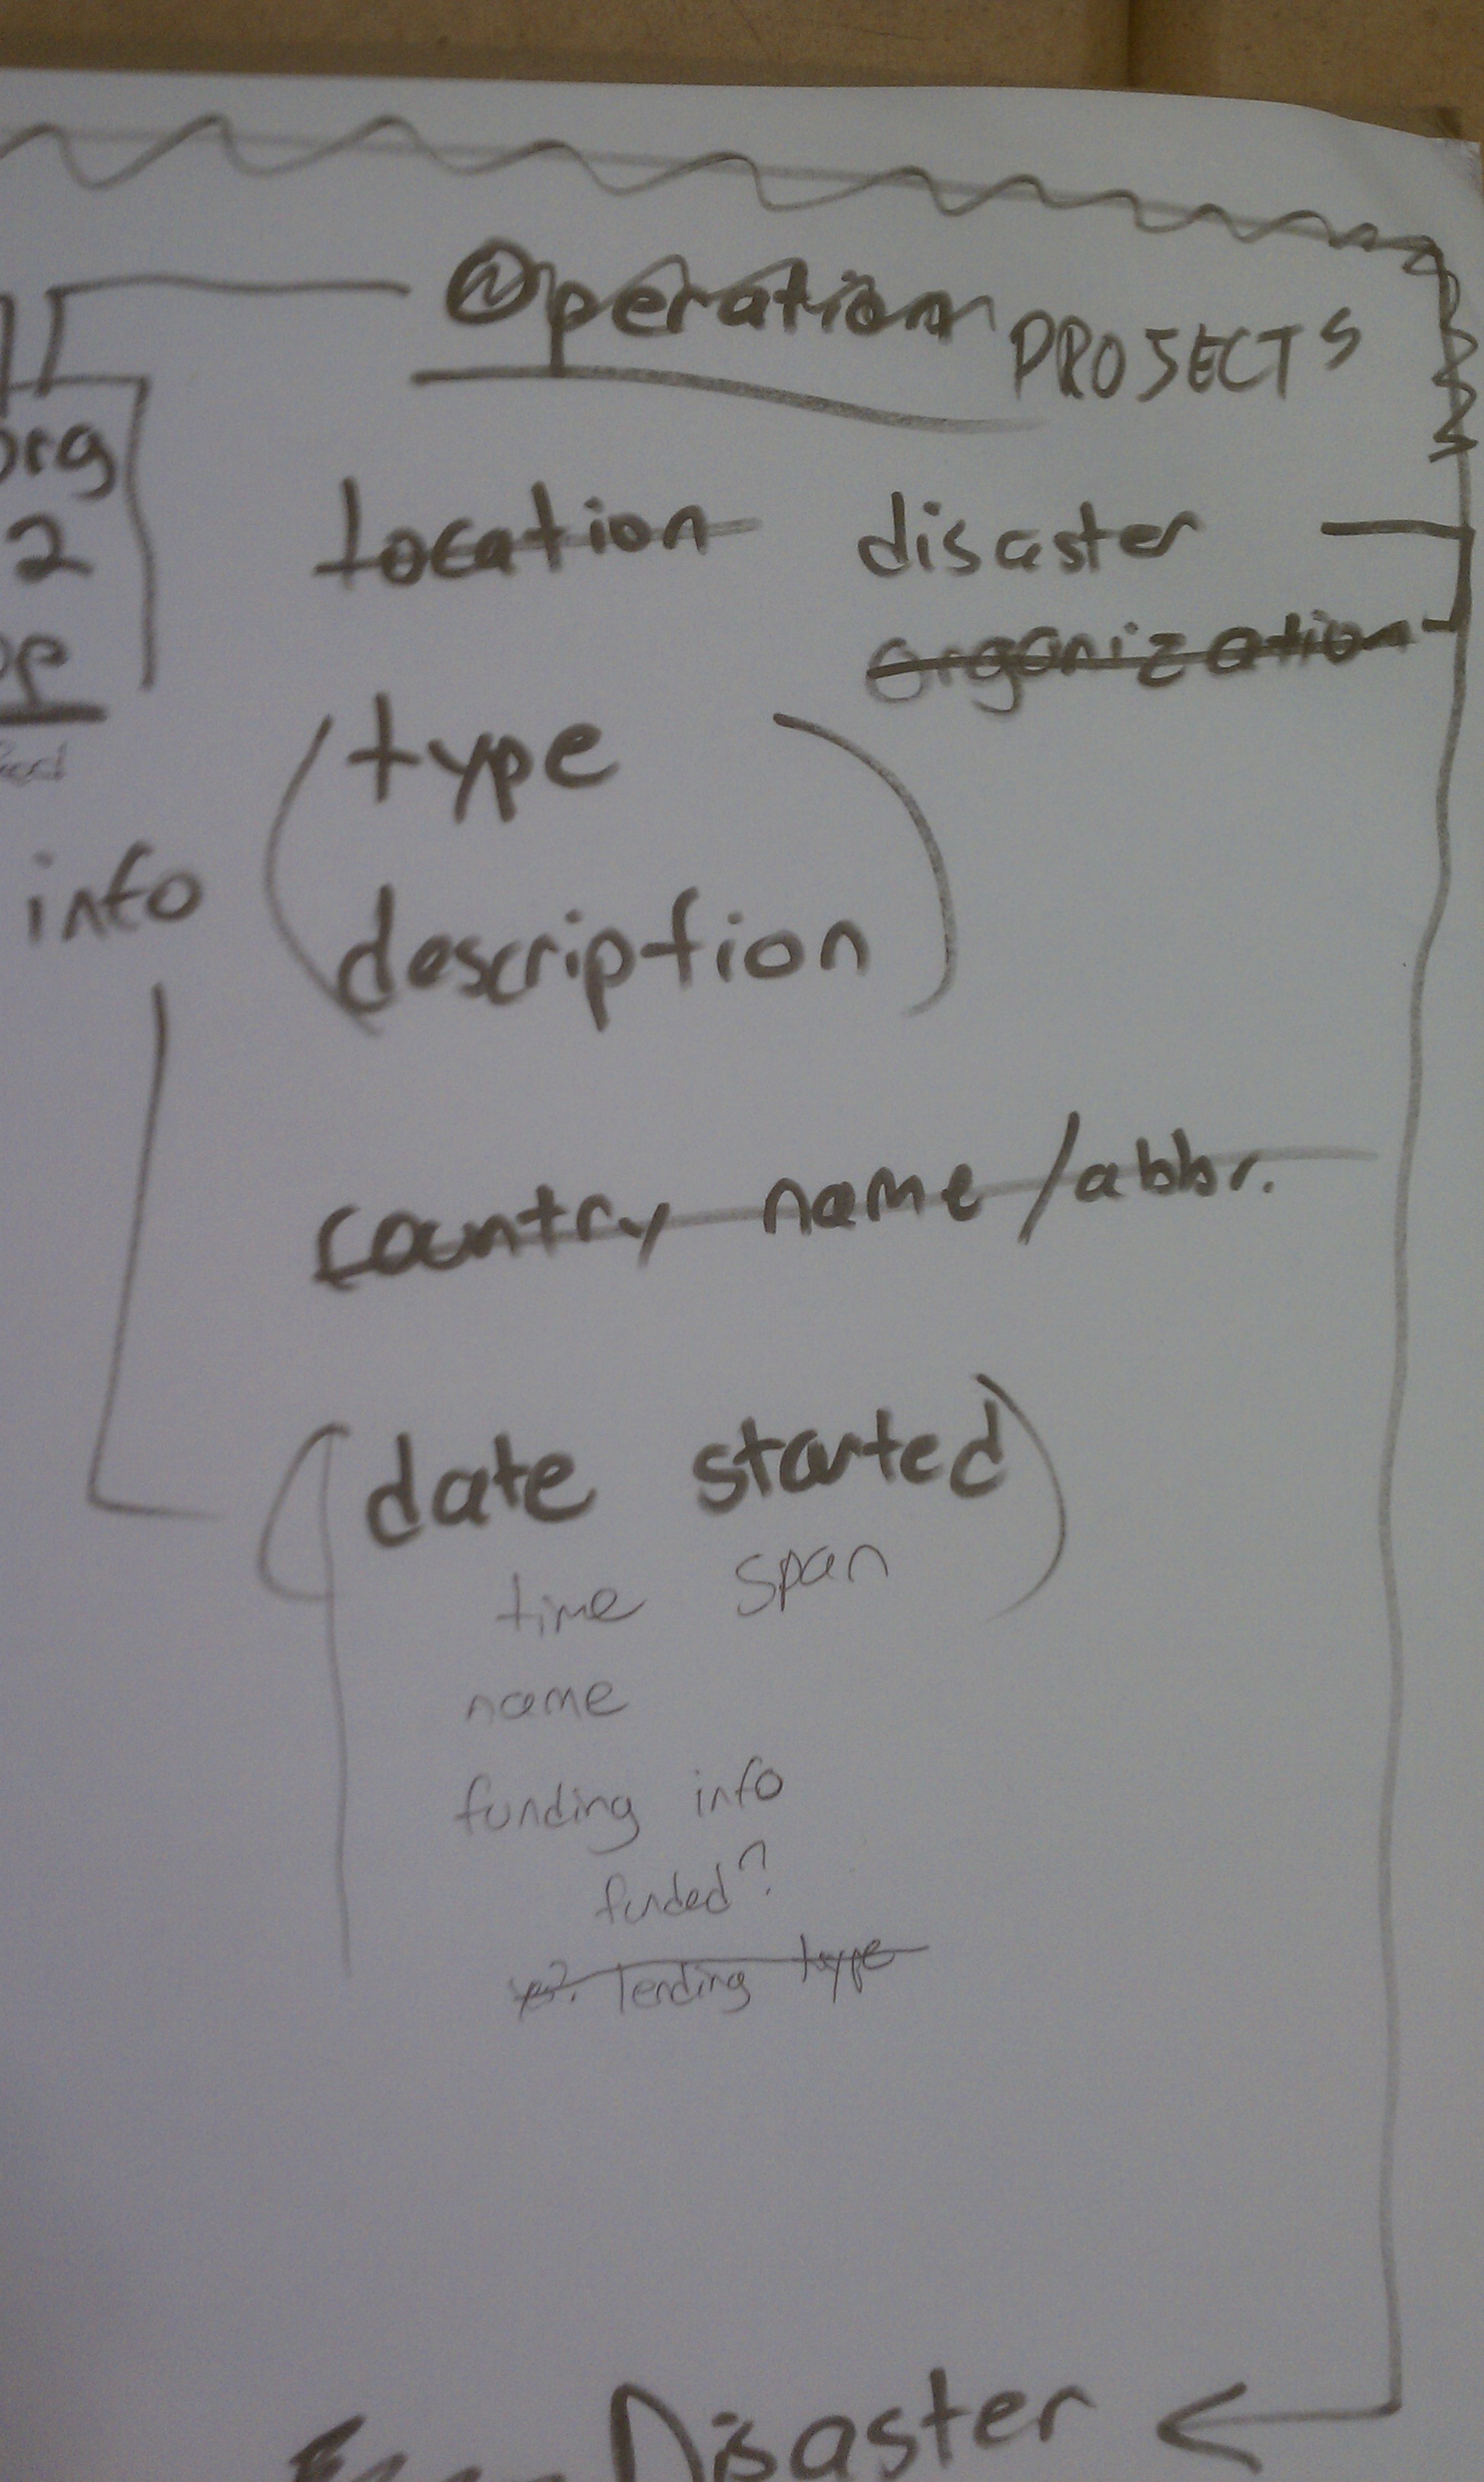 Operation PROJECTS
org
2
op
location disaster
organization
type
info
description
country name /abbr.
date started
time span
name
funding info
funded?
lending type
Disaster